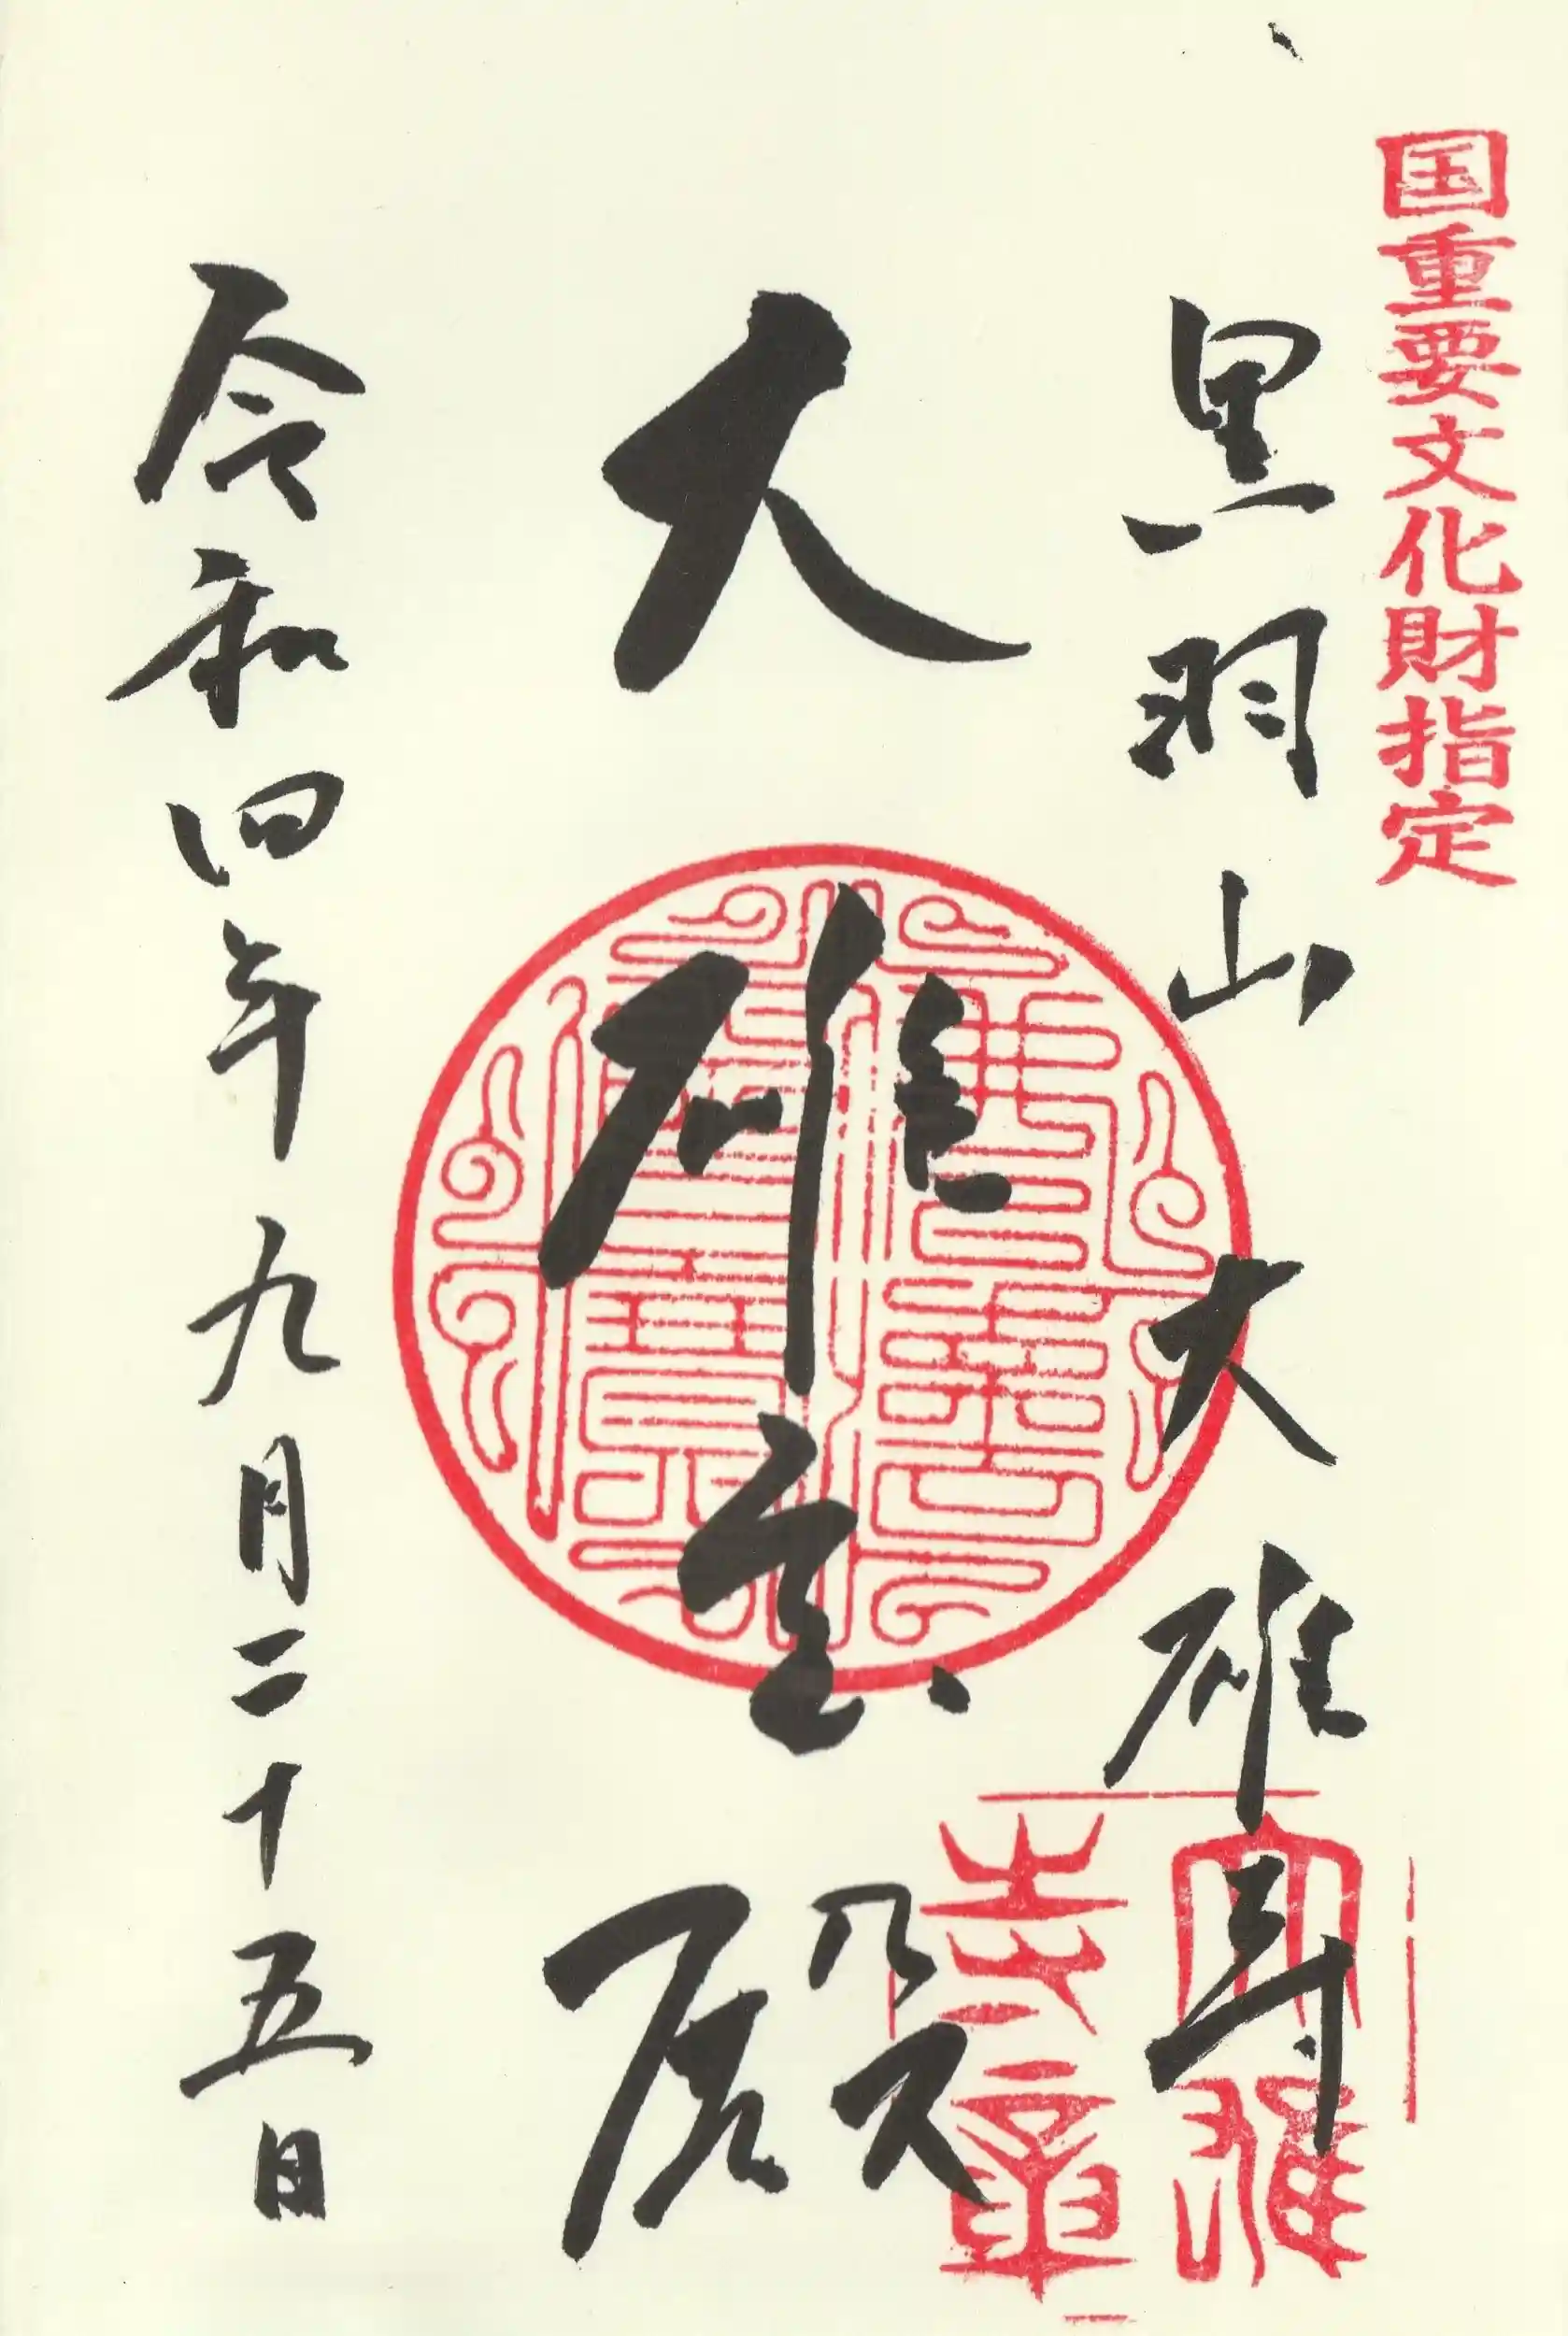 国重要文化財指定
黒羽山大雄寺
大雄宝殿
令和四年九月二十五日